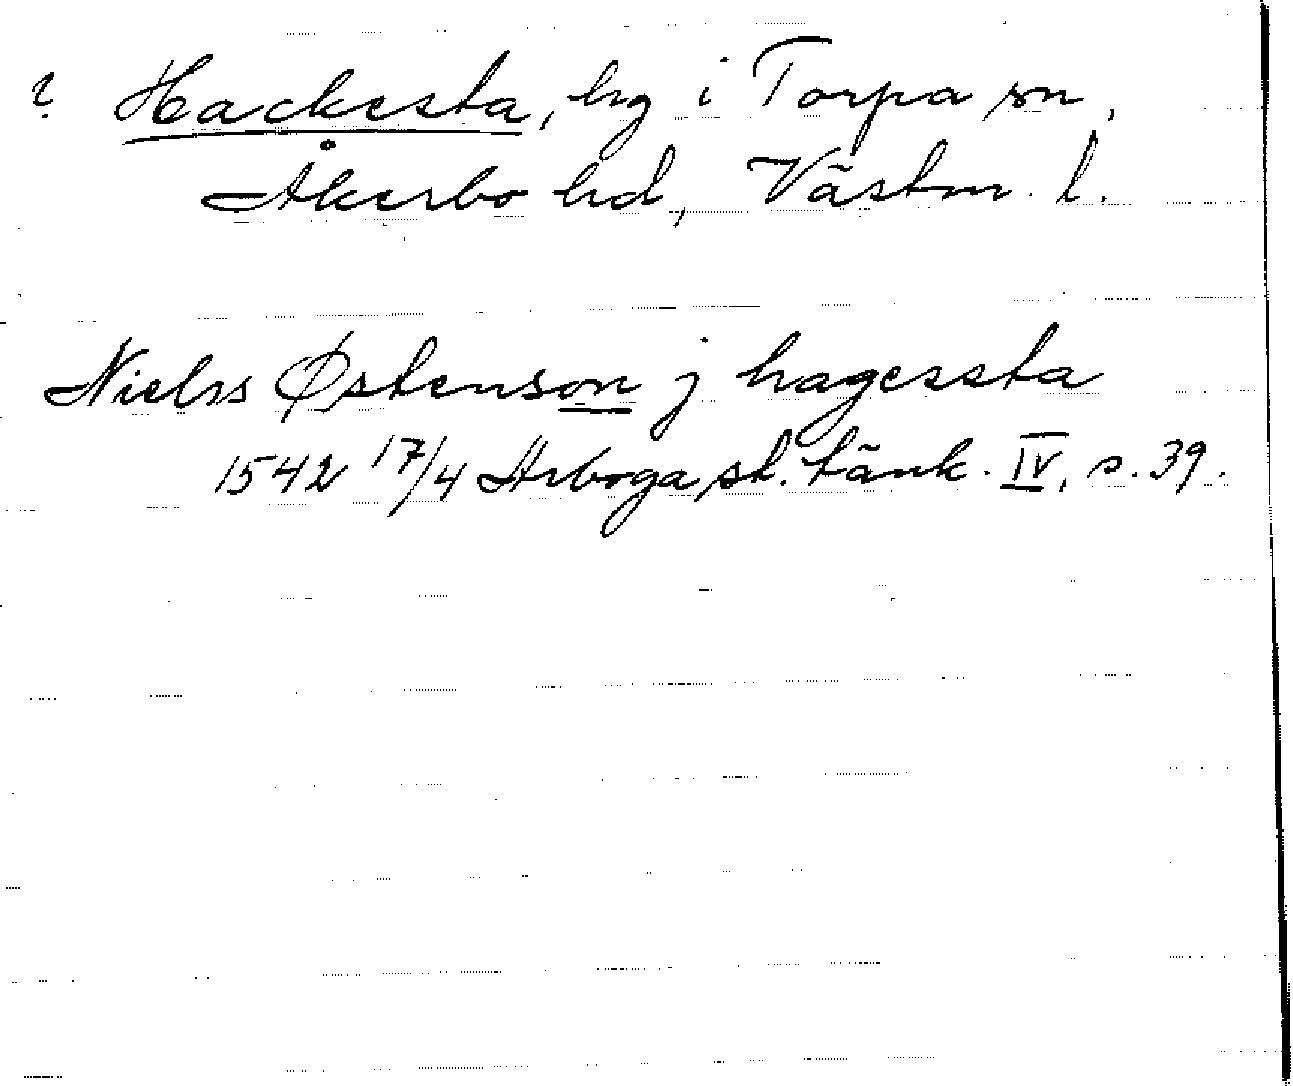 ? Hackesta, hg i Torpa sn,
Åkerbo hd, Västm. l.
Nielss Østenson j hagessta
1542 17/4 Arboga st. tänk. IV, s. 39.